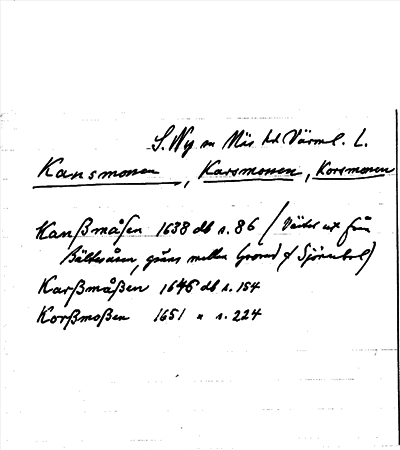 S. Ny sn Näs hd Värml. L.
Kansmonen, Karsmonen, Korsmonen
Kanßmåsen 1638 db s. 86 (Väster ut från
Bältesåsen, gräns mellan
Karßmåßen 1646 db s. 154
Korßmoßen 1651 " s. 224